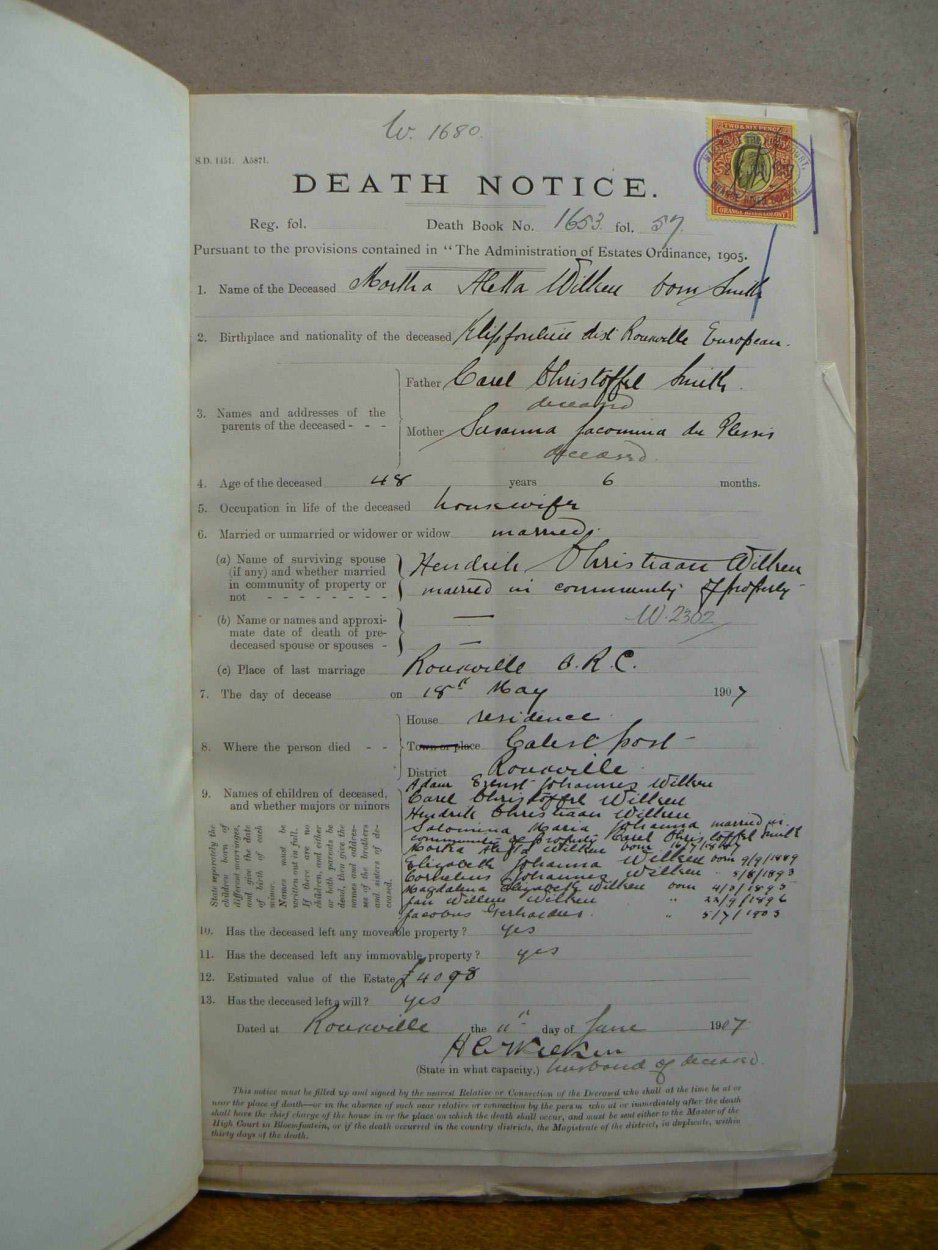 W. 1680.
S.D. 1451. A5871.
TWO & SIX PENCE
ORANGE RIVER COLONY
DEATH NOTICE.
Reg. fol. Death Book No. 1653 fol. 57
Pursuant to the provisions contained in "The Administration of Estates Ordinance, 1905.
1. Name of the Deceased Martha Aletta Wilken born Smith
2. Birthplace and nationality of the deceased Klipfontein dist Rouxville European.
Father Carel Christoffel Smith
deceased
3. Names and addresses of the
parents of the deceased - - -
Mother Susanna Jacomina du Plessis
deceased.
4. Age of the deceased 48 years 6 months.
5. Occupation in life of the deceased housewife
6. Married or unmarried or widower or widow married.
(a) Name of surviving spouse
(if any) and whether married
in community of property or
not - - - - - - - -
Hendrik Christiaan Wilken
married in community of property
(b) Name or names and approxi-
mate date of death of pre-
deceased spouse or spouses -
—
W. 2302
—
(c) Place of last marriage Rouxville O.R.C.
7. The day of decease on 18th May 1907
House residence
8. Where the person died - - Town or place
District Rouxville
9. Names of children of deceased,
and whether majors or minors
State separately the
children born of
different marriages,
and give the date
of birth of each
minor.
Names must be
written out in full.
If there are no
children, and either
or both parents be
dead, then give the
names and address-
es of the brothers
and sisters of de-
ceased.
Adam Ernst Johannes Wilken
Carel Christoffel Wilken
Hendrik Christiaan Wilken
Salomina Maria Johanna married in
community of property Carel Christoffel Smith
Martha Aletta Wilken born
Elizabeth Johanna Wilken born 9/9/1889
Cornelius Johannes Wilken " 5/8/1893
Magdalena Elizabeth Wilken born 4/3/1895
Jan Willem Wilken " 22/9/1896
Jacobus Gerhardus " 5/7/1903
10. Has the deceased left any moveable property? yes
11. Has the deceased left any immovable property? yes
12. Estimated value of the Estate £4098
13. Has the deceased left a will? yes
Dated at Rouxville the 11th day of June 1907
H C Wilken
(State in what capacity.) husband of deceased.
This notice must be filled up and signed by the nearest Relative or Connection of the Deceased who shall at the time be at or
near the place of death—or in the absence of such near relative or connection by the person who at or immediately after the death
shall have the chief charge of the house in or the place on which the death shall occur, and must be sent either to the Master of the
High Court in Bloemfontein, or if the death occurred in the country districts, the Magistrate of the district, in duplicate, within
thirty days of the death.